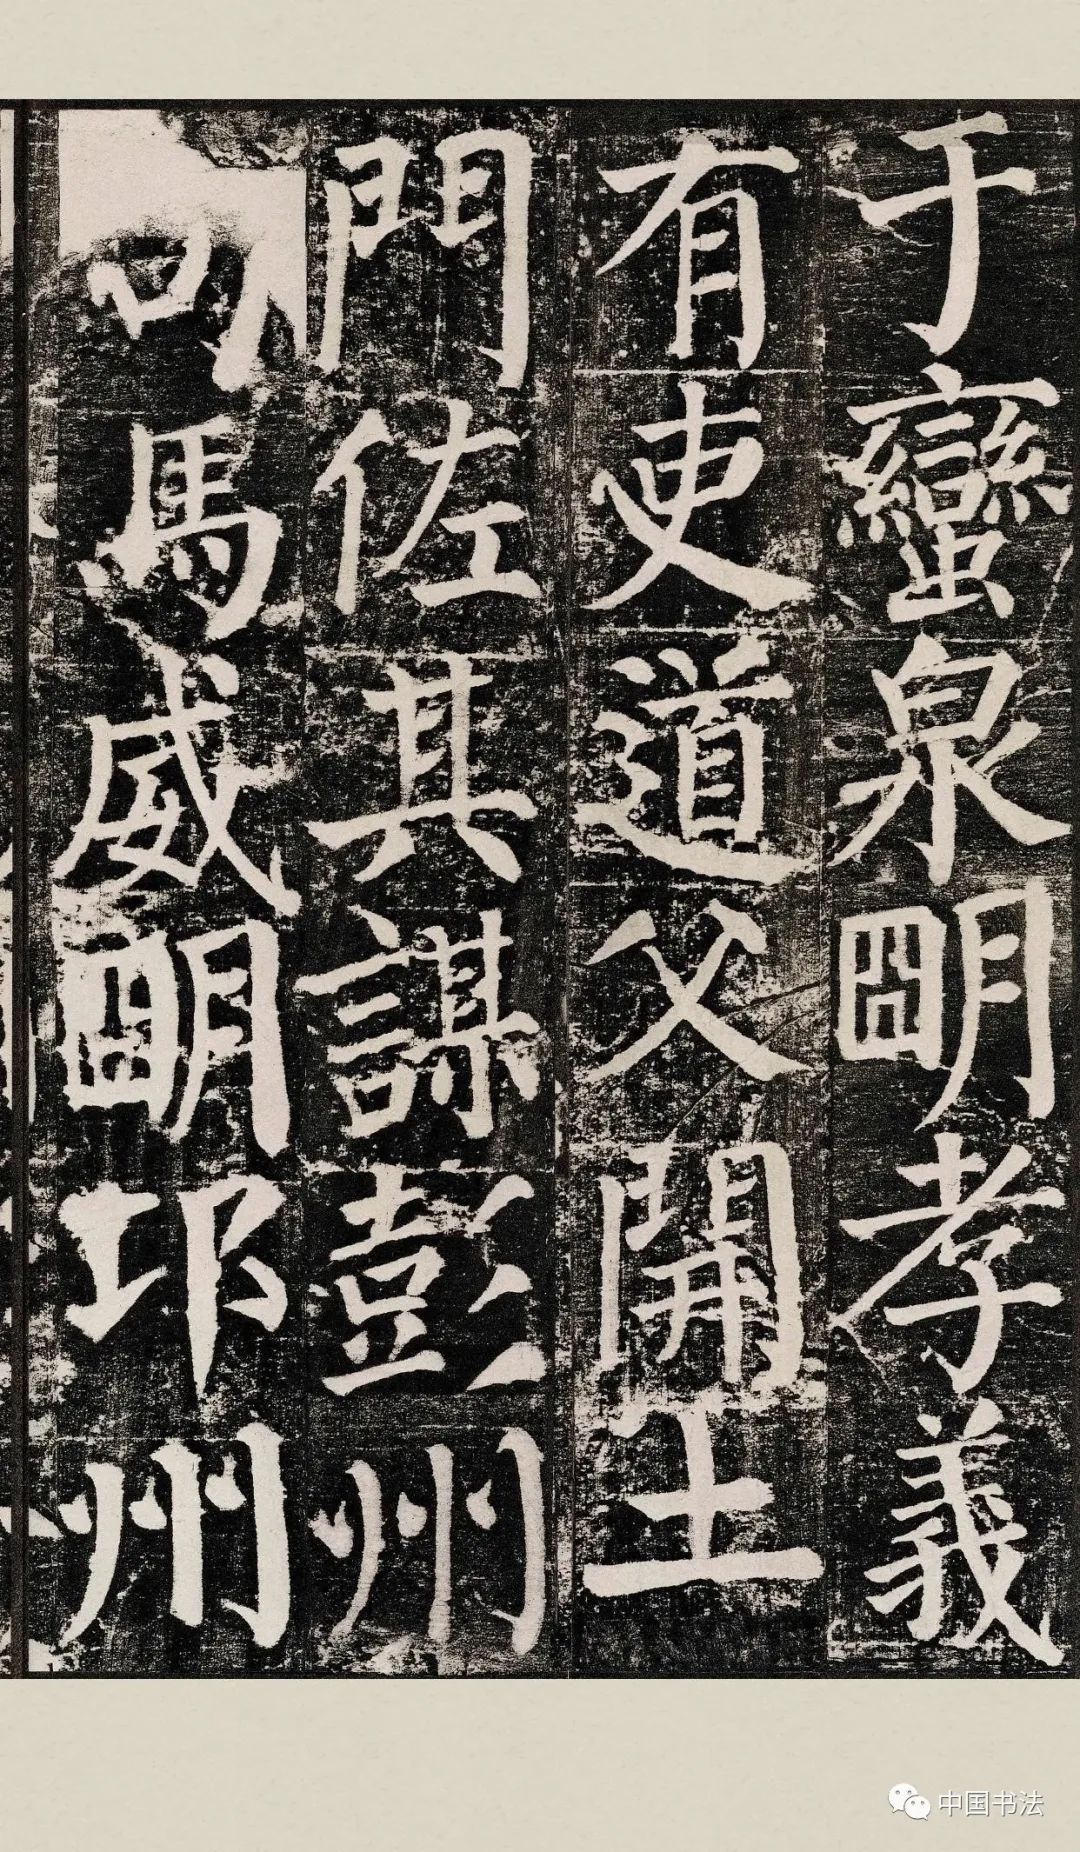 于蠻泉明孝義
有吏道父開土
門佐其謀彭州
司馬威明邛州
中国书法